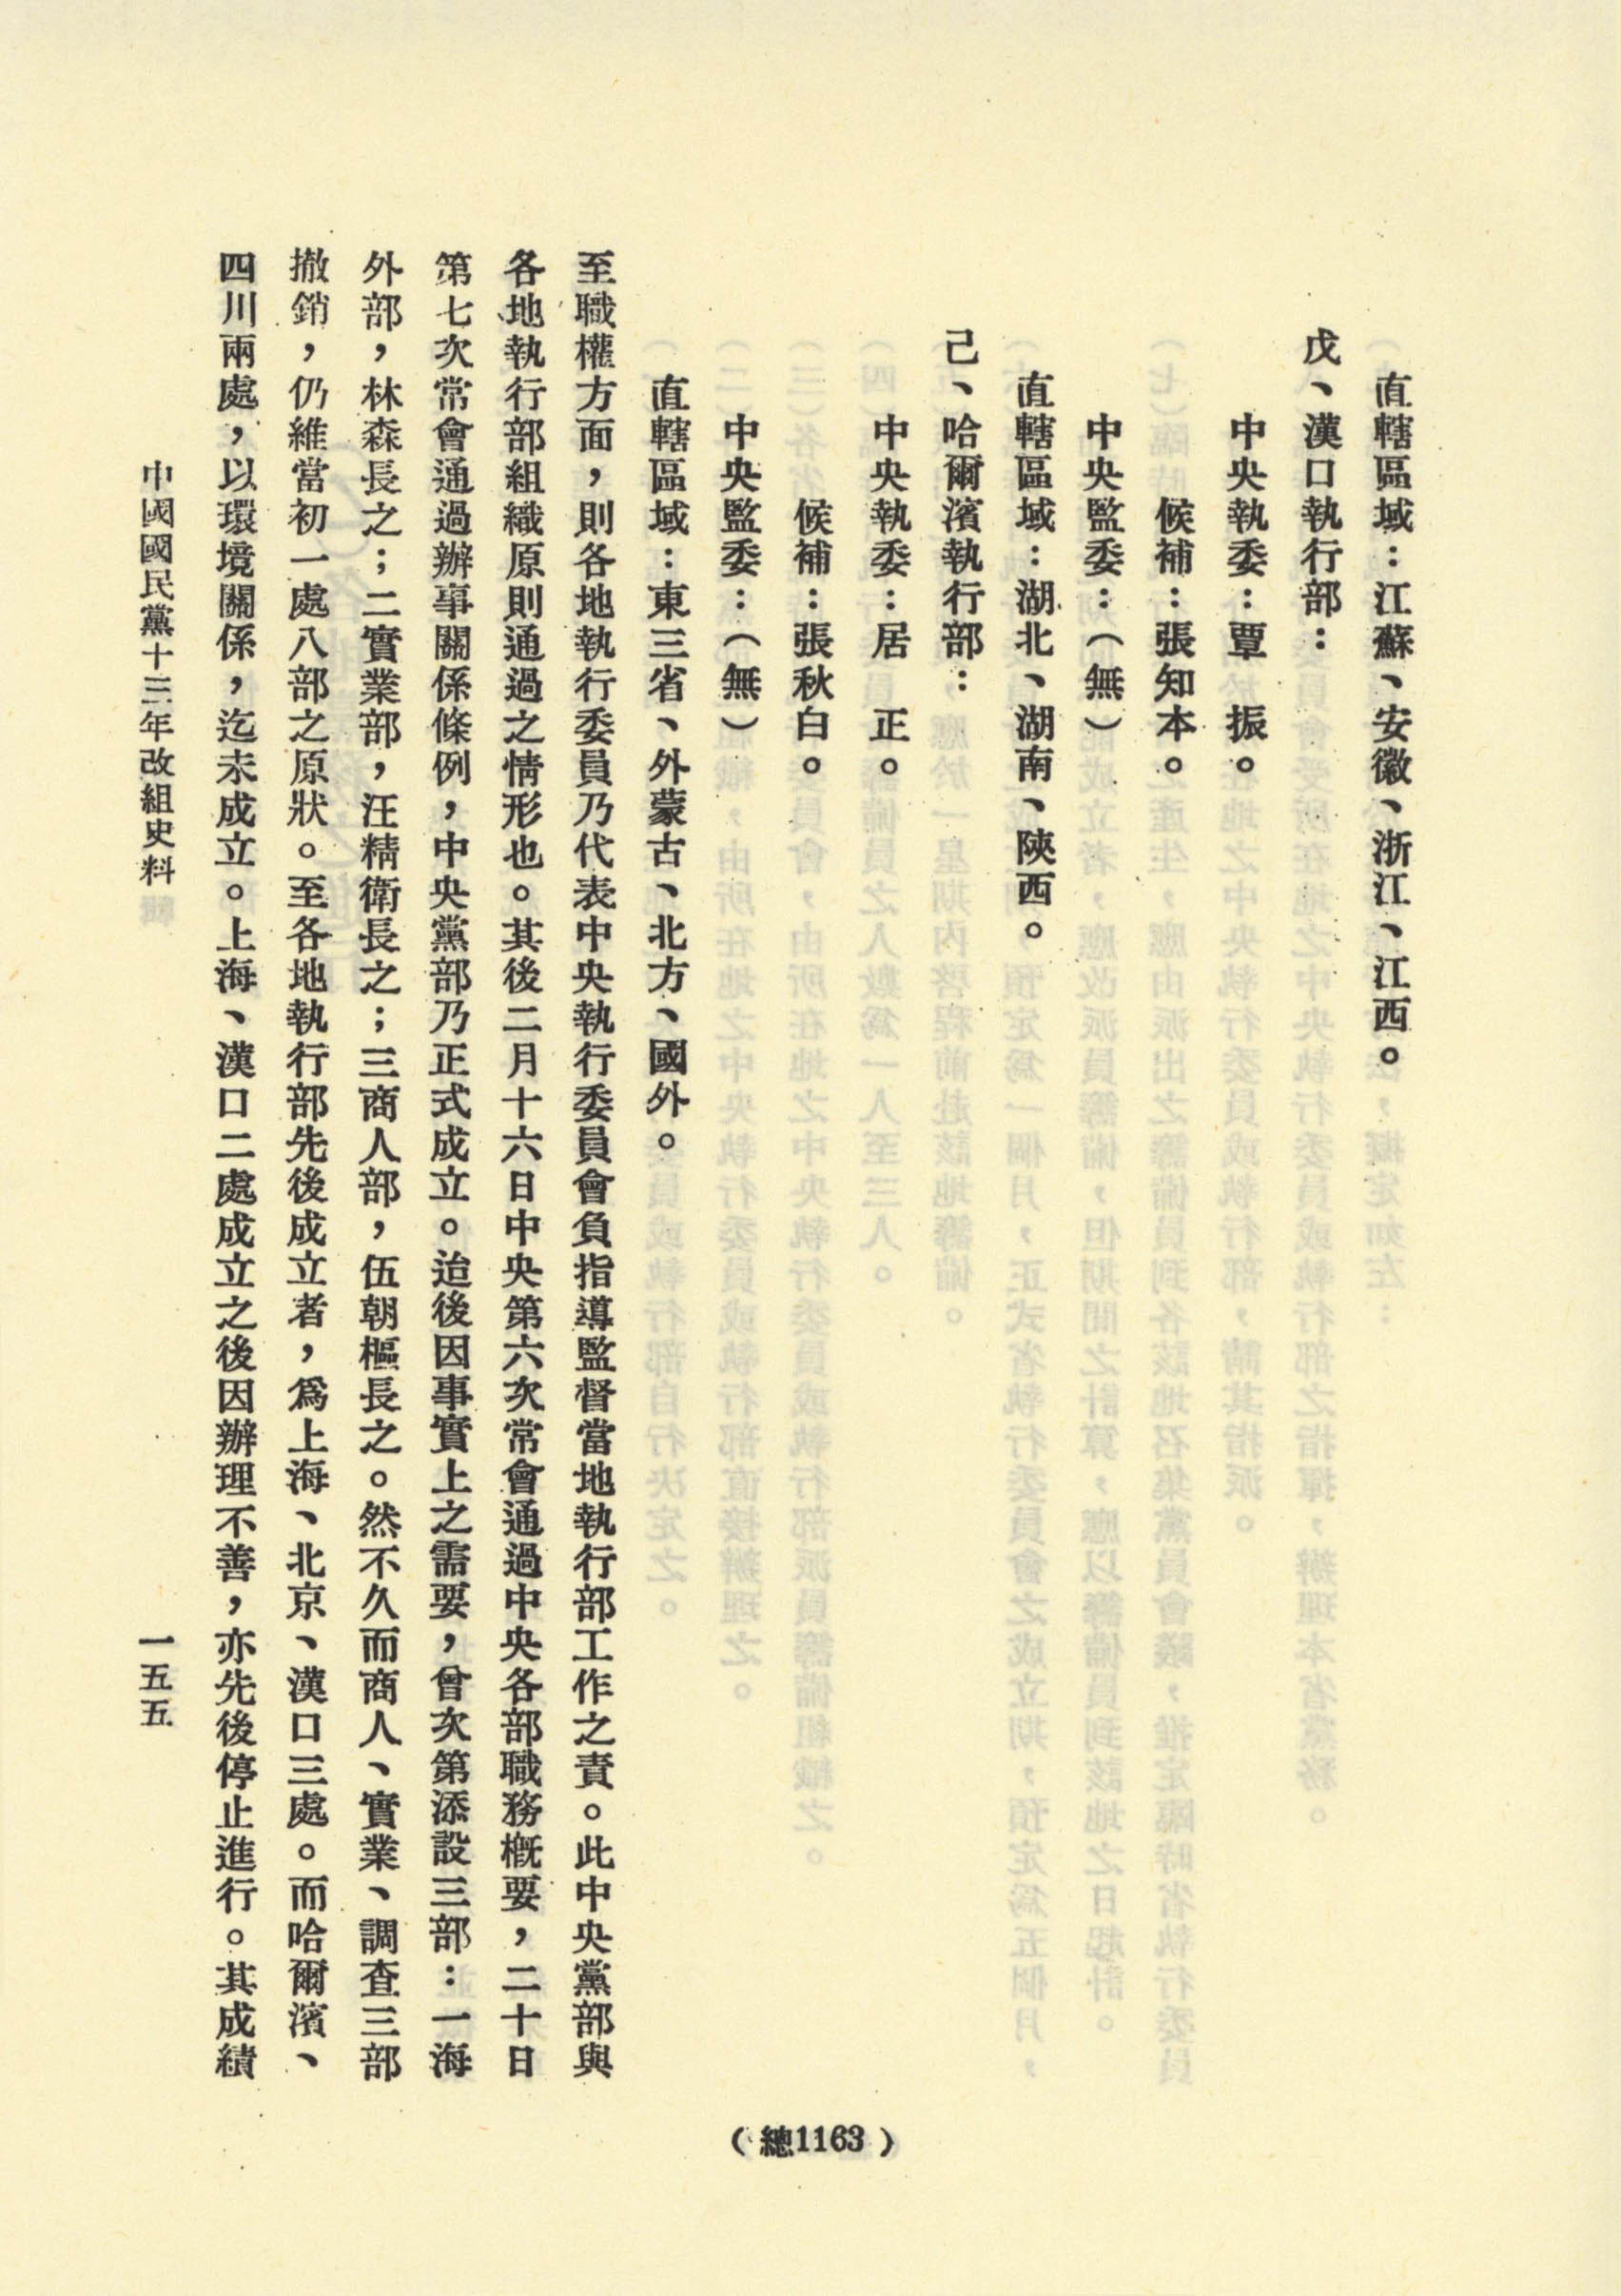 直轄區域：江蘇、安徽、浙江、江西。
戊、漢口執行部：
中央執委：覃　振。
候補：張知本。
中央監委：（無）
直轄區域：湖北、湖南、陝西。
己、哈爾濱執行部：
中央執委：居　正。
候補：張秋白。
中央監委：（無）
直轄區域：東三省、外蒙古、北方、國外。
至職權方面，則各地執行委員乃代表中央執行委員會負指導監督當地執行部工作之責。此中央黨部與
各地執行部組織原則通過之情形也。其後二月十六日中央第六次常會通過中央各部職務概要，二十日
第七次常會通過辦事關係條例，中央黨部乃正式成立。迨後因事實上之需要，曾次第添設三部：一海
外部，林森長之；二實業部，汪精衛長之；三商人部，伍朝樞長之。然不久而商人、實業、調查三部
撤銷，仍維當初一處八部之原狀。至各地執行部先後成立者，爲上海、北京、漢口三處。而哈爾濱、
四川兩處，以環境關係，迄未成立。上海、漢口二處成立之後因辦理不善，亦先後停止進行。其成績
中國國民黨十三年改組史料
一五五
（總1163）